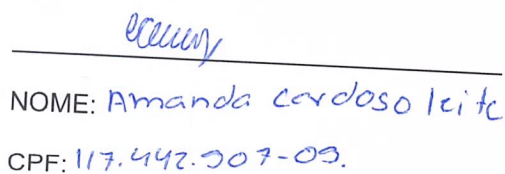 NOME: Amanda cardoso leite
CPF: 117.442.907-09.